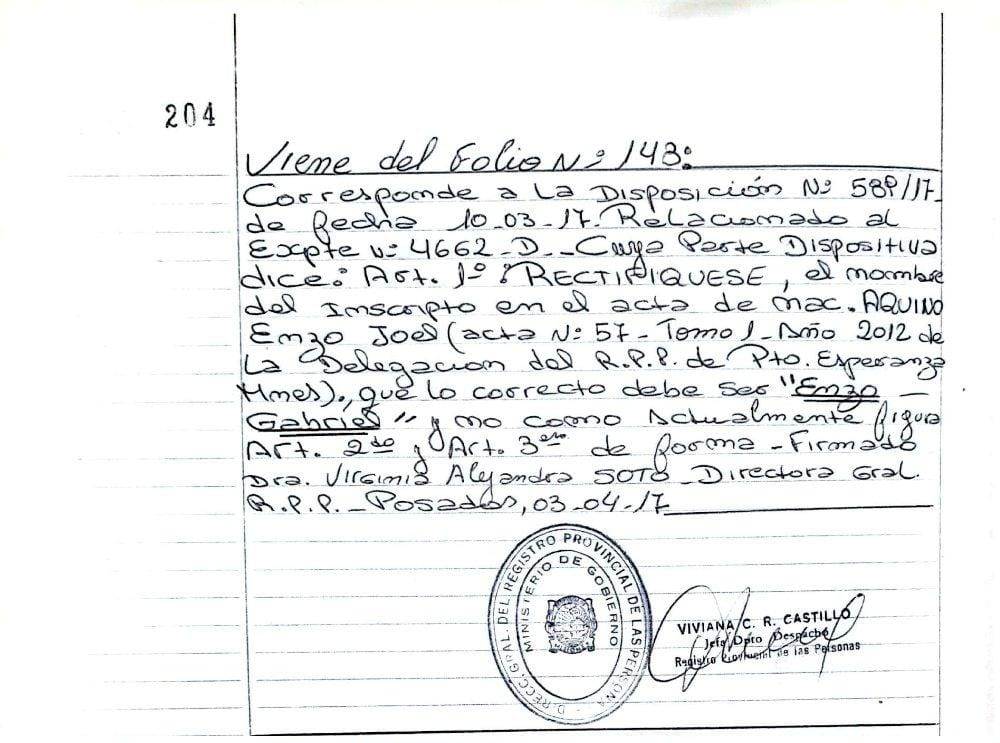 204
Viene del Folio Nº 143:
Corresponde a La Disposición Nº 589/17-
de fecha 10-03-17. Relacionado al
Expte Nº 4662-D-. Cuya Parte Dispositiva
dice: Art. 1º: RECTIFIQUESE, el nombre
del Inscripto en el acta de nac. AQUINO
Enzo Joel (acta Nº 57 - Tomo 1 - Año 2012 de
La Delegacion del R.P.P. de Pto. Esperanza
Mnes)., que lo correcto debe ser "Enzo -
Gabriel" y no como Actualmente figura
Art. 2do y Art. 3ero de forma - Firmado
Dra. Virginia Alejandra SOTO - Directora Gral.
R.P.P. - Posadas, 03-04-17
DIRECC. GRAL. DEL REGISTRO PROVINCIAL DE LAS PERSONAS
MINISTERIO DE GOBIERNO
VIVIANA C. R. CASTILLO
Jefa Dpto Despacho
Registro Provincial de las Personas